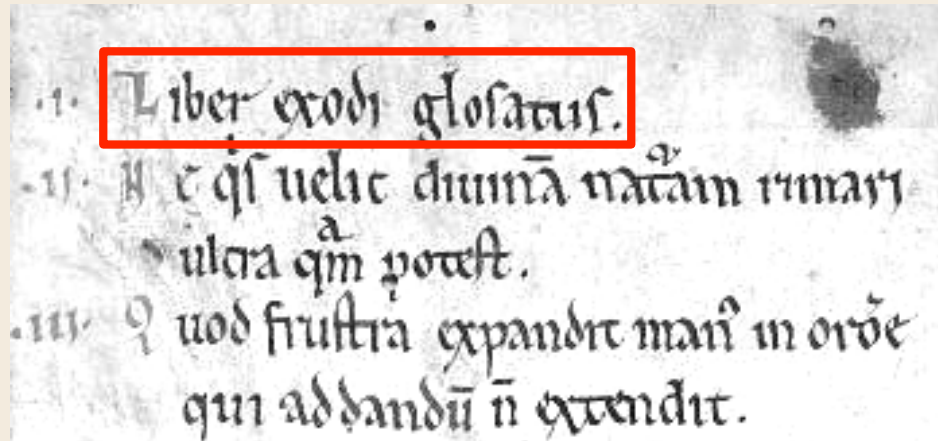 .I. Liber exodi glosatus.
.II. Ne q̇s uelit diuinā natᷓam rimari
ultra qᵃm potest.
.III. Quod frustra expandit manꝰ in orōe
qui ad dandū n̄ extendit.